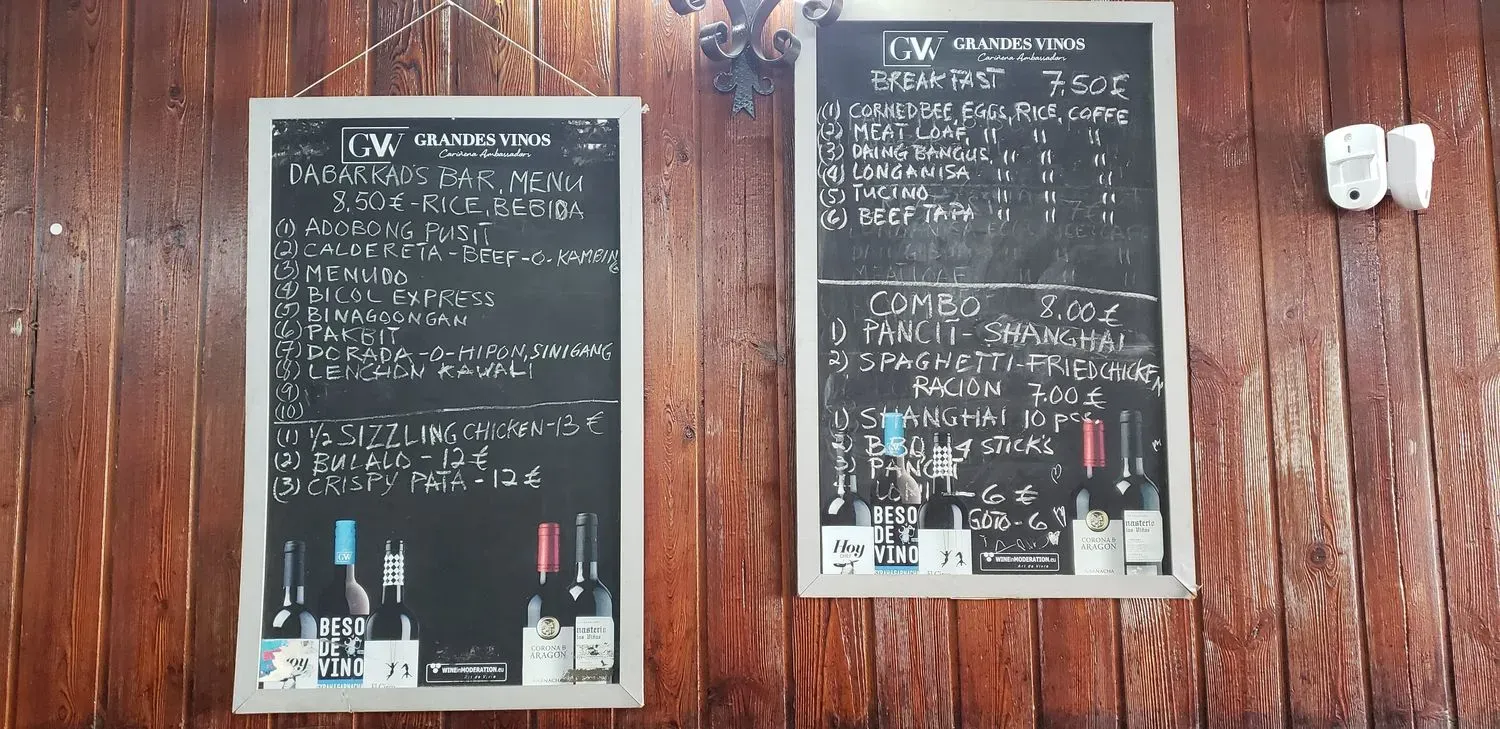 GVV GRANDES VINOS
Cariñena Ambassadors
DABARKAD'S BAR, MENU
8,50 € - RICE, BEBIDA
(1) ADOBONG PUSIT
(2) CALDERETA - BEEF - O - KAMBING
(3) MENUDO
(4) BICOL EXPRESS
(5) BINAGOONGAN
(6) PAKBIT
(7) DORADA - O - HIPON, SINIGANG
(8) LENCHON KAWALI
(9)
(10)
(1) 1/2 SIZZLING CHICKEN - 13 €
(2) BULALO - 12 €
(3) CRISPY PATA - 12 €
BESO
DE
VINO
SYRAH & GARNACHA
CORONA D
ARAGON
GARNACHA
WINEinMODERATION.eu
Art de Vivre
GVV GRANDES VINOS
Cariñena Ambassadors
BREAKFAST 7.50 €
(1) CORNEDBEE, EGGS, RICE, COFFE
(2) MEAT LOAF, " " "
(3) DAING BANGUS, " " "
(4) LONGANISA " " "
(5) TUCINO " " "
(6) BEEF TAPA " " "
COMBO 8.00 €
1) PANCIT - SHANGHAI
2) SPAGHETTI - FRIEDCHICKEN
RACION 7.00 €
1) SHANGHAI 10 pcs.
2) BBQ 4 STICK'S
3) PANCIT
LOMI - 6 €
GOTO - 6
Hoy
BESO
DE
VINO
SYRAH & GARNACHA
CORONA D
ARAGON
GARNACHA
WINEinMODERATION.eu
Art de Vivre